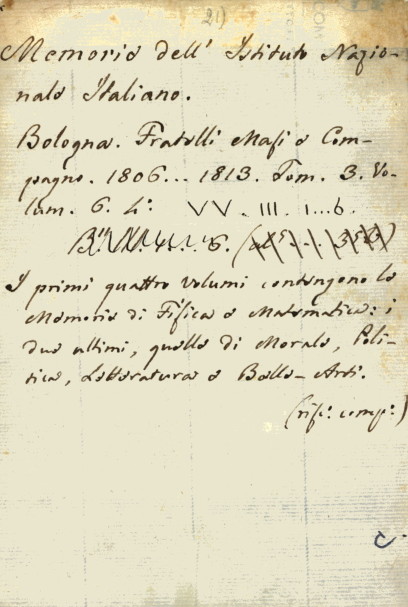 21)
Memorie dell' Istituto Nazio-
nale Italiano.
Bologna. Fratelli Masi e Com-
pagno. 1806... 1813. Tom. 3. Vo-
lum. 6. 4.° VV. III. 1...6.
I primi quattro volumi contengono le
Memorie di Fisica e Matematica: i
due ultimi, quelle di Morale, Poli-
tica, Letteratura e Belle-Arti.
(rifc: comp:)
C.